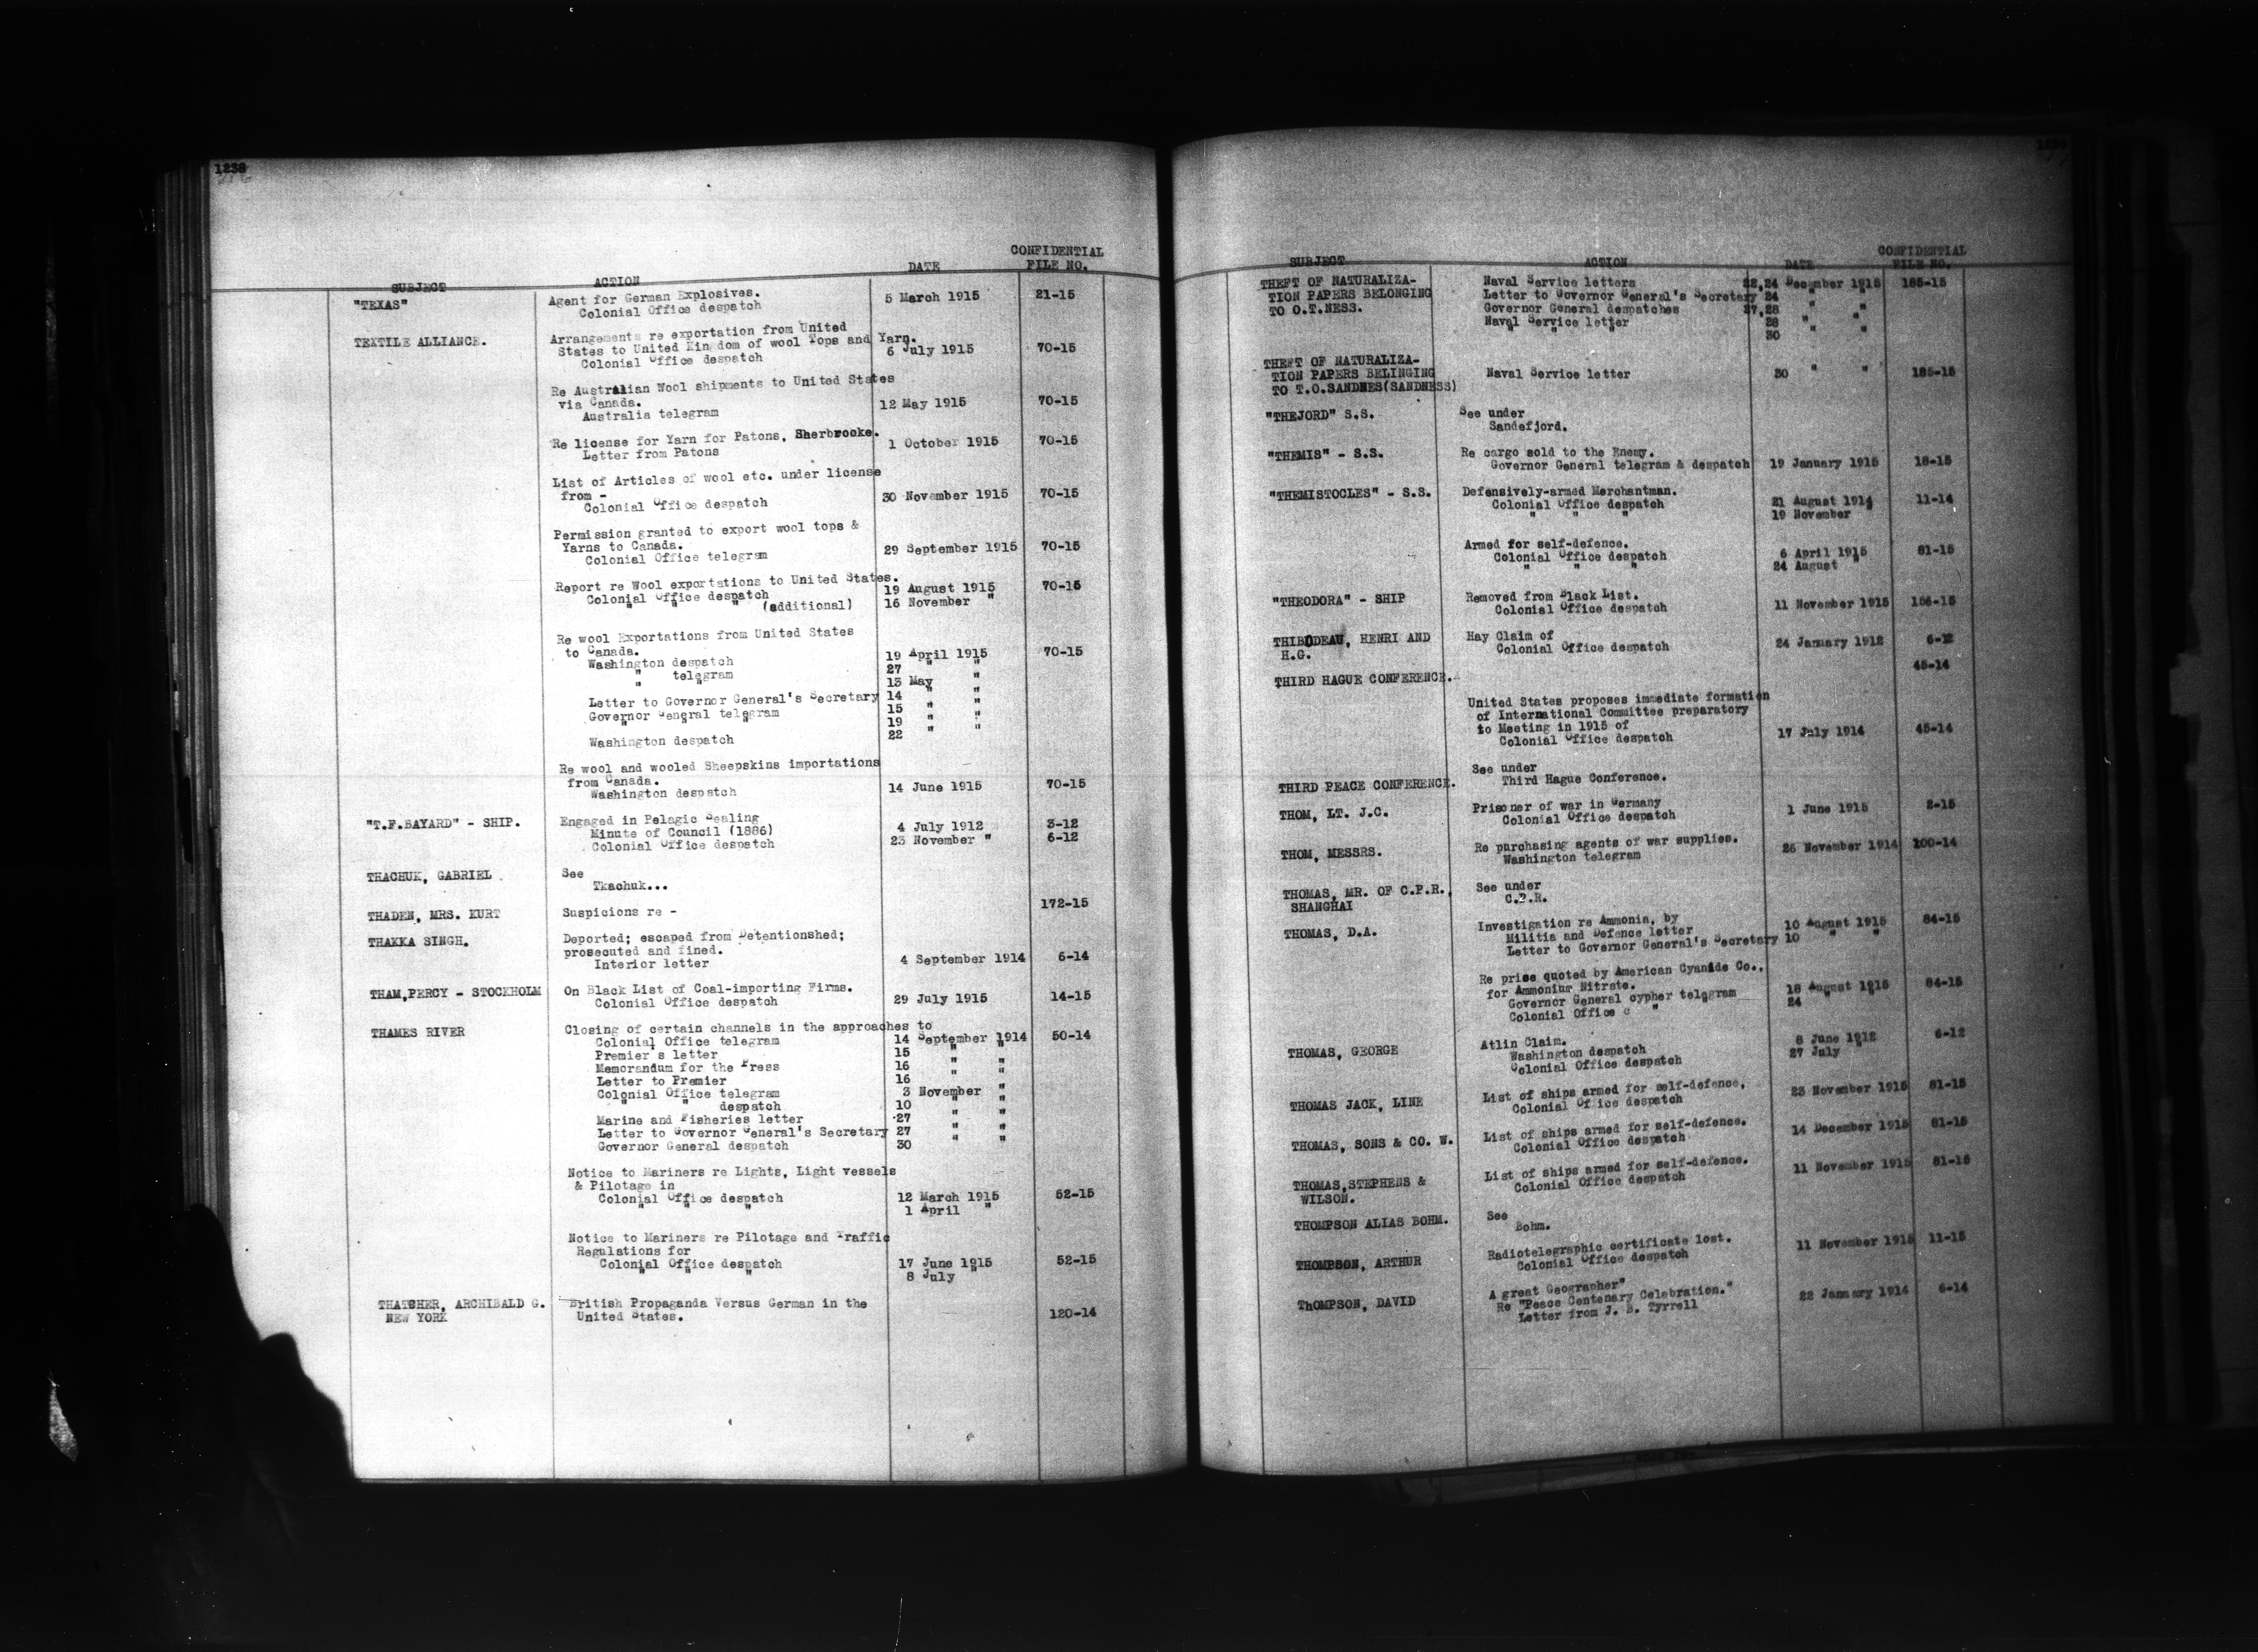 1238
SUBJECT ACTION DATE CONFIDENTIAL FILE NO.
"TEXAS" Agent for German Explosives.
Colonial Office despatch 5 March 1915 21-15
TEXTILE ALLIANCE. Arrangements re exportation from United
States to United Kingdom of wool Tops and Yarn.
Colonial Office despatch 6 July 1915 70-15
Re Australian Wool shipments to United States
via Canada.
Australia telegram 12 May 1915 70-15
Re license for Yarn for Patons, Sherbrooke.
Letter from Patons 1 October 1915 70-15
List of Articles of wool etc. under license
from -
Colonial Office despatch 30 November 1915 70-15
Permission granted to export wool tops &
Yarns to Canada.
Colonial Office telegram 29 September 1915 70-15
Report re Wool exportations to United States.
Colonial Office despatch 19 August 1915 70-15
" " " (additional) 16 November "
Re wool Exportations from United States
to Canada.
Washington despatch 19 April 1915 70-15
" telegram 27 " "
" " 13 May "
Letter to Governor General's Secretary 14 " "
Governor General telegram 15 " "
" " " 19 " "
Washington despatch 22 " "
Re wool and wooled Sheepskins importations
from Canada.
Washington despatch 14 June 1915 70-15
"T.F.BAYARD" - SHIP. Engaged in Pelagic Sealing
Minute of Council (1886) 4 July 1912 3-12
Colonial Office despatch 23 November " 6-12
THACHUK, GABRIEL See
Tkachuk...
THADEN, MRS. KURT Suspicions re - 172-15
THAKKA SINGH. Deported; escaped from Detentionshed;
prosecuted and fined.
Interior letter 4 September 1914 6-14
THAM,PERCY - STOCKHOLM On Black List of Coal-importing Firms.
Colonial Office despatch 29 July 1915 14-15
THAMES RIVER Closing of certain channels in the approaches to
Colonial Office telegram 14 September 1914 50-14
Premier's letter 15 " "
Memorandum for the Press 16 " "
Letter to Premier 16 " "
Colonial Office telegram 3 November "
" " despatch 10 " "
Marine and Fisheries letter 27 " "
Letter to Governor General's Secretary 27 " "
Governor General despatch 30 " "
Notice to Mariners re Lights, Light vessels
& Pilotage in
Colonial Office despatch 12 March 1915 52-15
" " " 1 April "
Notice to Mariners re Pilotage and Traffic
Regulations for
Colonial Office despatch 17 June 1915 52-15
" " " 8 July "
THATCHER, ARCHIBALD G. British Propaganda Versus German in the
NEW YORK United States. 120-14
SUBJECT ACTION DATE CONFIDENTIAL FILE NO.
THEFT OF NATURALIZA- Naval Service letters 22,24 December 1915 185-15
TION PAPERS BELONGING Letter to Governor General's Secretary 24 " "
TO O.T.NESS. Governor General despatches 27,28 " "
Naval Service letter 28 " "
" " " 30 " "
THEFT OF NATURALIZA-
TION PAPERS BELINGING Naval Service letter 30 " " 185-15
TO T.O.SANDNES(SANDNESS)
"THEJORD" S.S. See under
Sandefjord.
"THEMIS" - S.S. Re cargo sold to the Enemy.
Governor General telegram & despatch 19 January 1915 18-15
"THEMISTOCLES" - S.S. Defensively-armed Merchantman.
Colonial Office despatch 21 August 1914 11-14
" " " 19 November "
Armed for self-defence.
Colonial Office despatch 6 April 1915 81-15
" " " 24 August "
"THEODORA" - SHIP Removed from Black List.
Colonial Office despatch 11 November 1915 156-15
THIBODEAU, HENRI AND Hay Claim of
H.G. Colonial Office despatch 24 January 1912 6-12
THIRD HAGUE CONFERENCE. 45-14
United States proposes immediate formation
of International Committee preparatory
to Meeting in 1915 of
Colonial Office despatch 17 July 1914 45-14
THIRD PEACE CONFERENCE. See under
Third Hague Conference.
THOM, LT. J.C. Prisoner of war in Germany
Colonial Office despatch 1 June 1915 2-15
THOM, MESSRS. Re purchasing agents of war supplies.
Washington telegram 26 November 1914 100-14
THOMAS, MR. OF C.P.R., See under
SHANGHAI C.P.R.
THOMAS, D.A. Investigation re Ammonia, by
Militia and Defence letter 10 August 1915 84-15
Letter to Governor General's Secretary 10 " "
Re price quoted by American Cyanide Co.,
for Ammonium Nitrate.
Governor General cypher telegram 18 August 1915 84-15
Colonial Office c " 24 " "
THOMAS, GEORGE Atlin Claim.
Washington despatch 8 June 1912 6-12
Colonial Office despatch 27 July "
THOMAS JACK, LINE List of ships armed for self-defence.
Colonial Office despatch 23 November 1915 81-15
THOMAS, SONS & CO. W. List of ships armed for self-defence.
Colonial Office despatch 14 December 1915 81-15
THOMAS,STEPHENS & List of ships armed for self-defence.
WILSON. Colonial Office despatch 11 November 1915 81-15
THOMPSON ALIAS BOHM. See
Bohm.
THOMPSON, ARTHUR Radiotelegraphic certificate lost.
Colonial Office despatch 11 November 1915 11-15
ThOMPSON, DAVID A great Geographer"
Re "Peace Centenary Celebration."
Letter from J. B. Tyrrell 22 January 1914 6-14